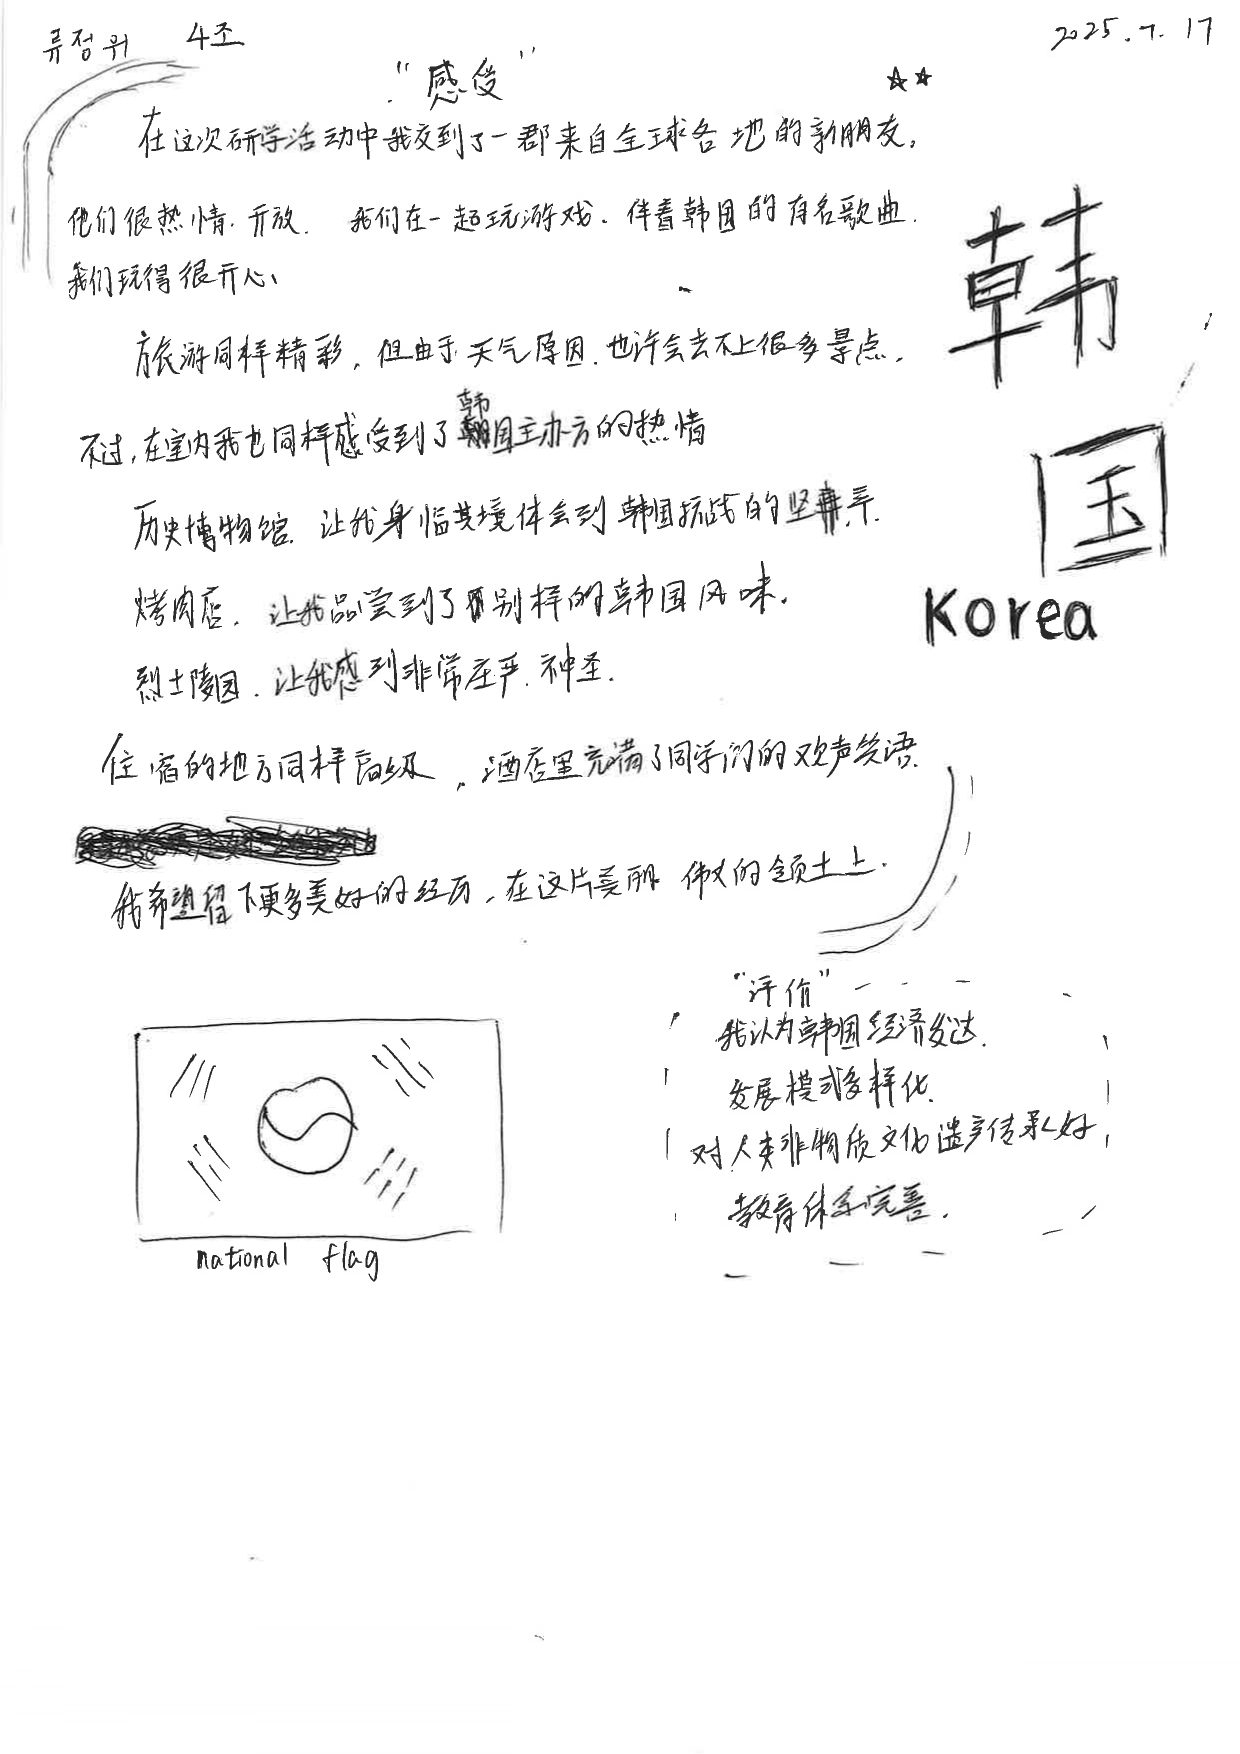 류정위 4조
2025.7.17
"感受"
在这次研学活动中我交到了一群来自全球各地的新朋友,
他们很热情.开放. 我们在一起玩游戏、伴着韩国的有名歌曲.
我们玩得很开心、
旅游同样精彩,但由于天气原因.也许会去不上很多景点.
不过,在室内我也同样感受到了韩国主办方的热情
历史博物馆. 让我身临其境体会到韩国抗战的坚
烤肉店. 让我品尝到了别样的韩国风味.
烈士陵园. 让我感到非常庄严.神圣.
住宿的地方同样高级,酒店里充满了同学们的欢声笑语.
我希望留下更多美好的经历,在这片美丽 伟大的领土上.
韩
国
Korea
national flag
"评价"
我认为韩国经济发达.
发展模式多样化.
对人类非物质文化遗产传承好
教育体系完善.